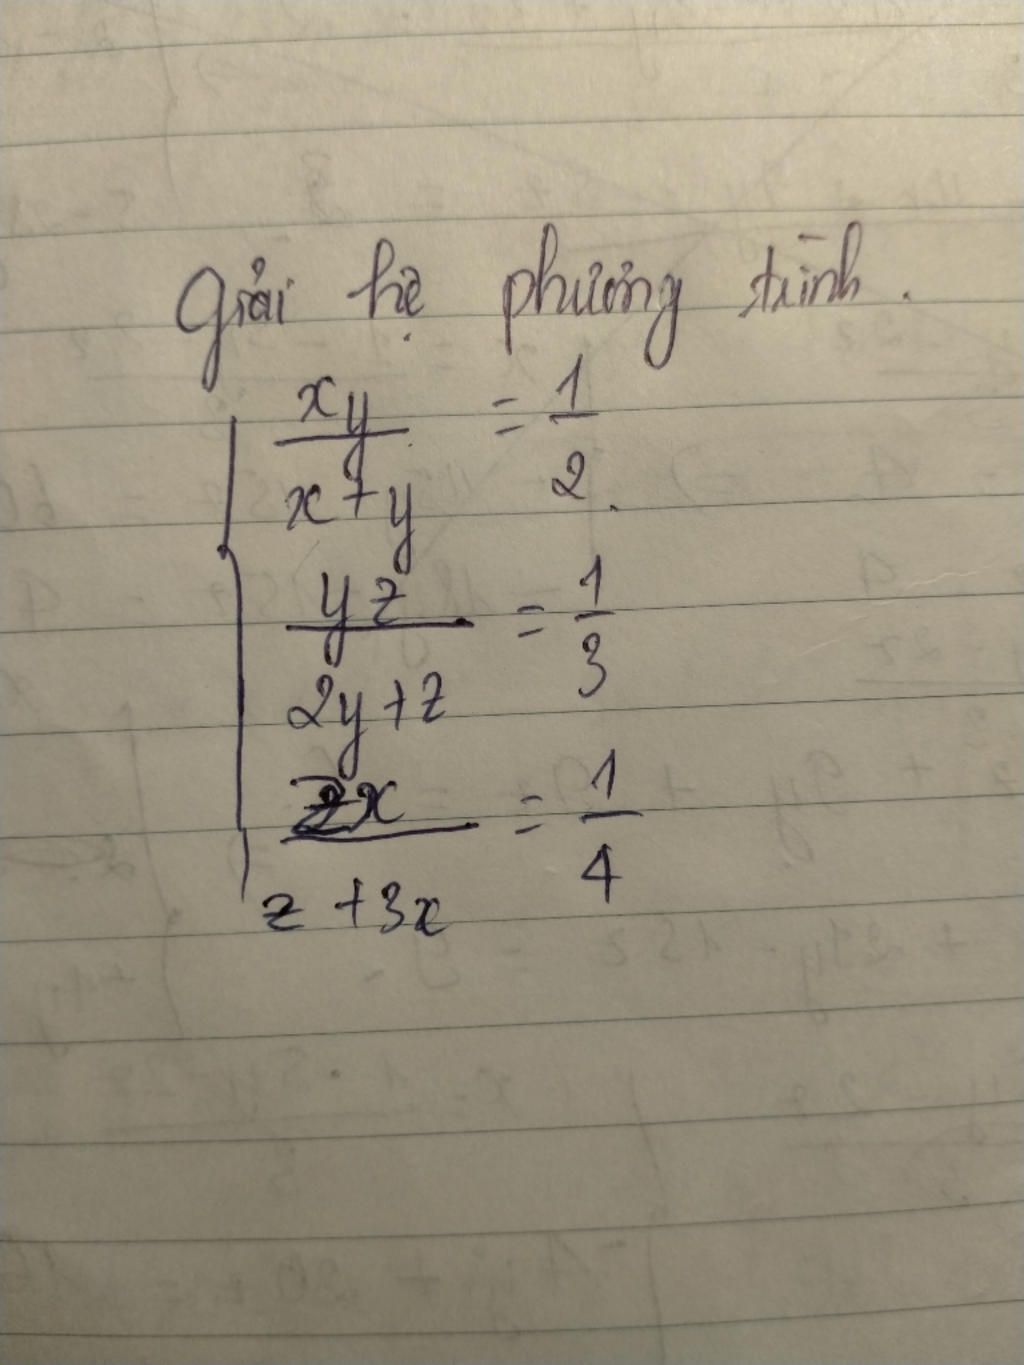 Giải hệ phương trình.
xy = 1
x+y 2.
yz = 1
2y+z 3
zx = 1
z +3x 4